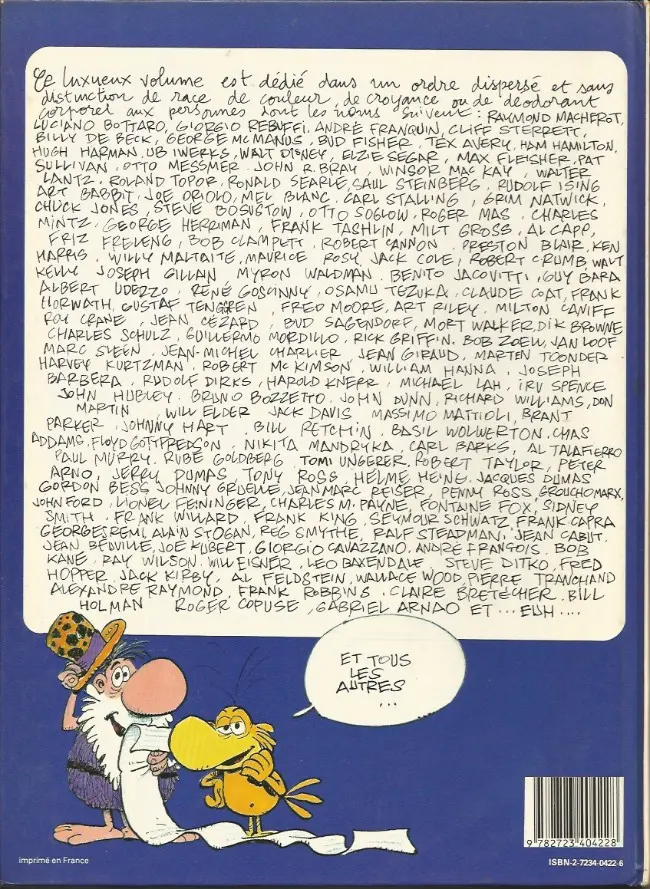 Ce luxueux volume est dédié dans un ordre dispersé et sans
distinction de race de couleur, de croyance ou de déodorant
corporel aux personnes dont les noms suivent : RAYMOND MACHEROT,
LUCIANO BOTTARO, GIORGIO REBUFFI. ANDRÉ FRANQUIN, CLIFF STERRETT,
BILLY DE BECK, GEORGE McMANUS, BUD FISHER, TEX AVERY, HAM HAMILTON,
HUGH HARMAN, UB IWERKS, WALT DISNEY, ELZIE SEGAR, MAX FLEISHER, PAT
SULLIVAN, OTTO MESSMER, JOHN R. BRAY, WINSOR MAC KAY, WALTER
LANTZ, ROLAND TOPOR, RONALD SEARLE, SAUL STEINBERG, RUDOLF ISING
ART BABBIT, JOE ORIOLO, MEL BLANC, CARL STALLING, GRIM NATWICK,
CHUCK JONES, STEVE BOSUSTOW, OTTO SOGLOW, ROGER MAS, CHARLES
MINTZ, GEORGE HERRIMAN, FRANK TASHLIN, MILT GROSS, AL CAPP,
FRIZ FRELENG, BOB CLAMPETT, ROBERT CANNON, PRESTON BLAIR, KEN
HARRIS, WILLY MALTAITE, MAURICE ROSY, JACK COLE, ROBERT CRUMB, WALT
KELLY, JOSEPH GILLAIN, MYRON WALDMAN, BENITO JACOVITTI, GUY BARA
ALBERT UDEZZO, RENÉ GOSCINNY, OSAMU TEZUKA, CLAUDE COAT, FRANK
HORWATH, GUSTAF TENGGREN, FRED MOORE, ART RILEY, MILTON CANIFF
ROY CRANE, JEAN CÉZARD, BUD SAGENDORF, MORT WALKER, DIK BROWNE
CHARLES SCHULZ, GUILLERMO MORDILLO, RICK GRIFFIN. BOB ZOELL, JAN LOOF
MARC SLEEN, JEAN-MICHEL CHARLIER, JEAN GIRAUD, MARTEN TOONDER
HARVEY KURTZMAN, ROBERT McKIMSON, WILLIAM HANNA, JOSEPH
BARBERA, RUDOLF DIRKS, HAROLD KNERR, MICHAEL LAH, IRV SPENCE
JOHN HUBLEY, BRUNO BOZZETTO, JOHN DUNN, RICHARD WILLIAMS, DON
MARTIN, WILL ELDER, JACK DAVIS, MASSIMO MATTIOLI, BRANT
PARKER, JOHNNY HART, BILL RETCHIN, BASIL WOLWERTON, CHAS
ADDAMS, FLOYD GOTTFREDSON, NIKITA MANDRYKA, CARL BARKS, AL TALAFIERRO
PAUL MURRY, RUBE GOLDBERG, TOMI UNGERER, ROBERT TAYLOR, PETER
ARNO, JERRY DUMAS, TONY ROSS, HELME HEINE, JACQUES DUMAS
GORDON BESS, JOHNNY GRUELLE, JEAN MARC REISER, PENNY ROSS, GROUCHO MARX,
JOHN FORD, LIONEL FEININGER, CHARLES M. PAYNE, FONTAINE FOX, SIDNEY
SMITH, FRANK WILLARD, FRANK KING, SEYMOUR SCHWATZ, FRANK CAPRA
GEORGES REMI, ALAIN STOGAN, REG SMYTHE, RALF STEADMAN, JEAN CABUT,
JEAN BEDVILLE, JOE KUBERT, GIORGIO CAVAZZANO, ANDRÉ FRANÇOIS, BOB
KANE, RAY WILSON, WILL EISNER, LEO BAXENDALE, STEVE DITKO, FRED
HOPPER, JACK KIRBY, AL FELDSTEIN, WALLACE WOOD, PIERRE TRANCHAND
ALEXANDRE RAYMOND, FRANK ROBBINS, CLAIRE BRETECHER, BILL
HOLMAN, ROGER COPUSE, GABRIEL ARNAO ET... EUH....
ET TOUS
LES
AUTRES
...
9 782723 404228
imprimé en France
ISBN-2-7234-0422-6